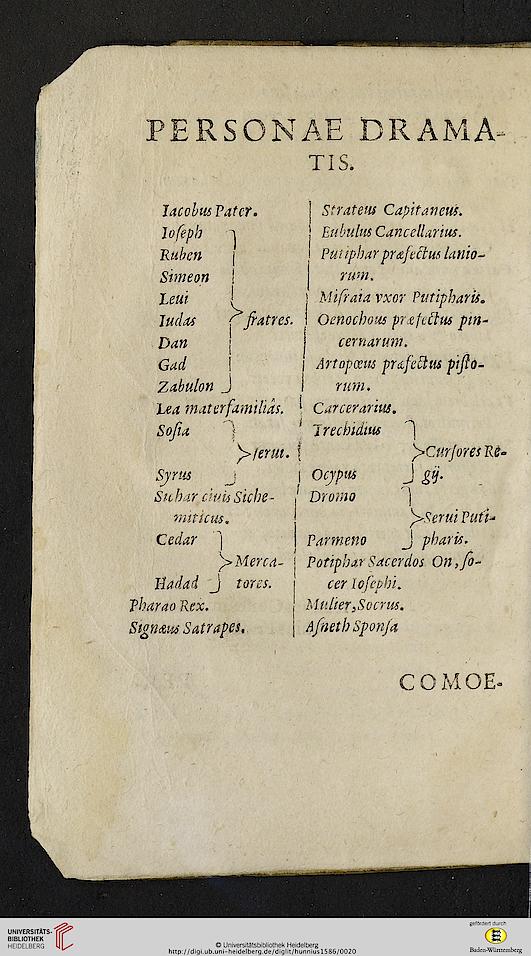 PERSONAE DRAMA-
TIS.
Iacobus Pater.
Ioseph
Ruben
Simeon
Leui
Iudas
fratres.
Dan
Gad
Zabulon
Lea materfamiliâs.
Sosia
serui.
Syrus
Sichar ciuis Siche-
miticus.
Cedar
Merca-
Hadad
tores.
Pharao Rex.
Signæus Satrapes.
Strateus Capitaneus.
Eubulus Cancellarius.
Putiphar præfectus lanio-
rum.
Misraia vxor Putipharis.
Oenochous præfectus pin-
cernarum.
Artopœus præfectus pisto-
rum.
Carcerarius.
Trechidius
Cursores Re-
Ocypus
gij.
Dromo
Serui Puti-
Parmeno
pharis.
Potiphar Sacerdos On, so-
cer Iosephi.
Mulier, Socrus.
Asneth Sponsa
COMOE-
UNIVERSITÄTS-
BIBLIOTHEK
HEIDELBERG
© Universitätsbibliothek Heidelberg
http://digi.ub.uni-heidelberg.de/diglit/hunnius1586/0020
gefördert durch
Baden-Württemberg